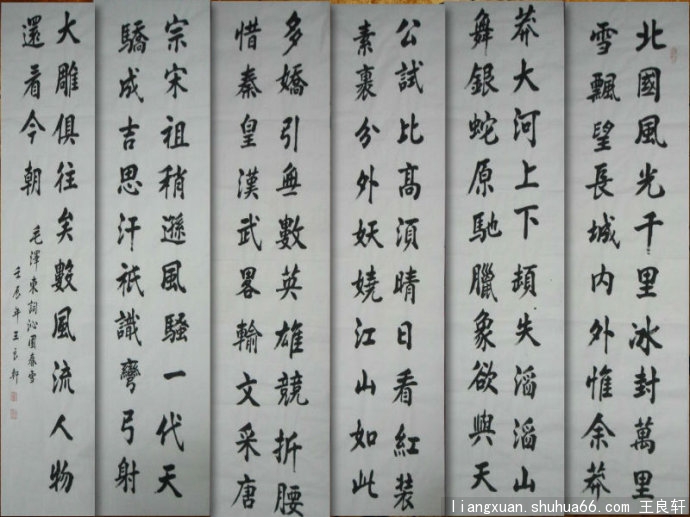 北國風光千里冰封萬里
雪飄望長城內外惟余莽
莽大河上下頓失滔滔山
舞銀蛇原馳臘象欲與天
公試比高須晴日看紅裝
素裹分外妖嬈江山如此
多嬌引無數英雄競折腰
惜秦皇漢武畧輸文采唐
宗宋祖稍遜風騷一代天
驕成吉思汗祇識彎弓射
大雕俱往矣數風流人物
還看今朝
毛澤東詞沁園春雪
壬辰年王良軒
liangxuan.shuhua66.com 王良轩